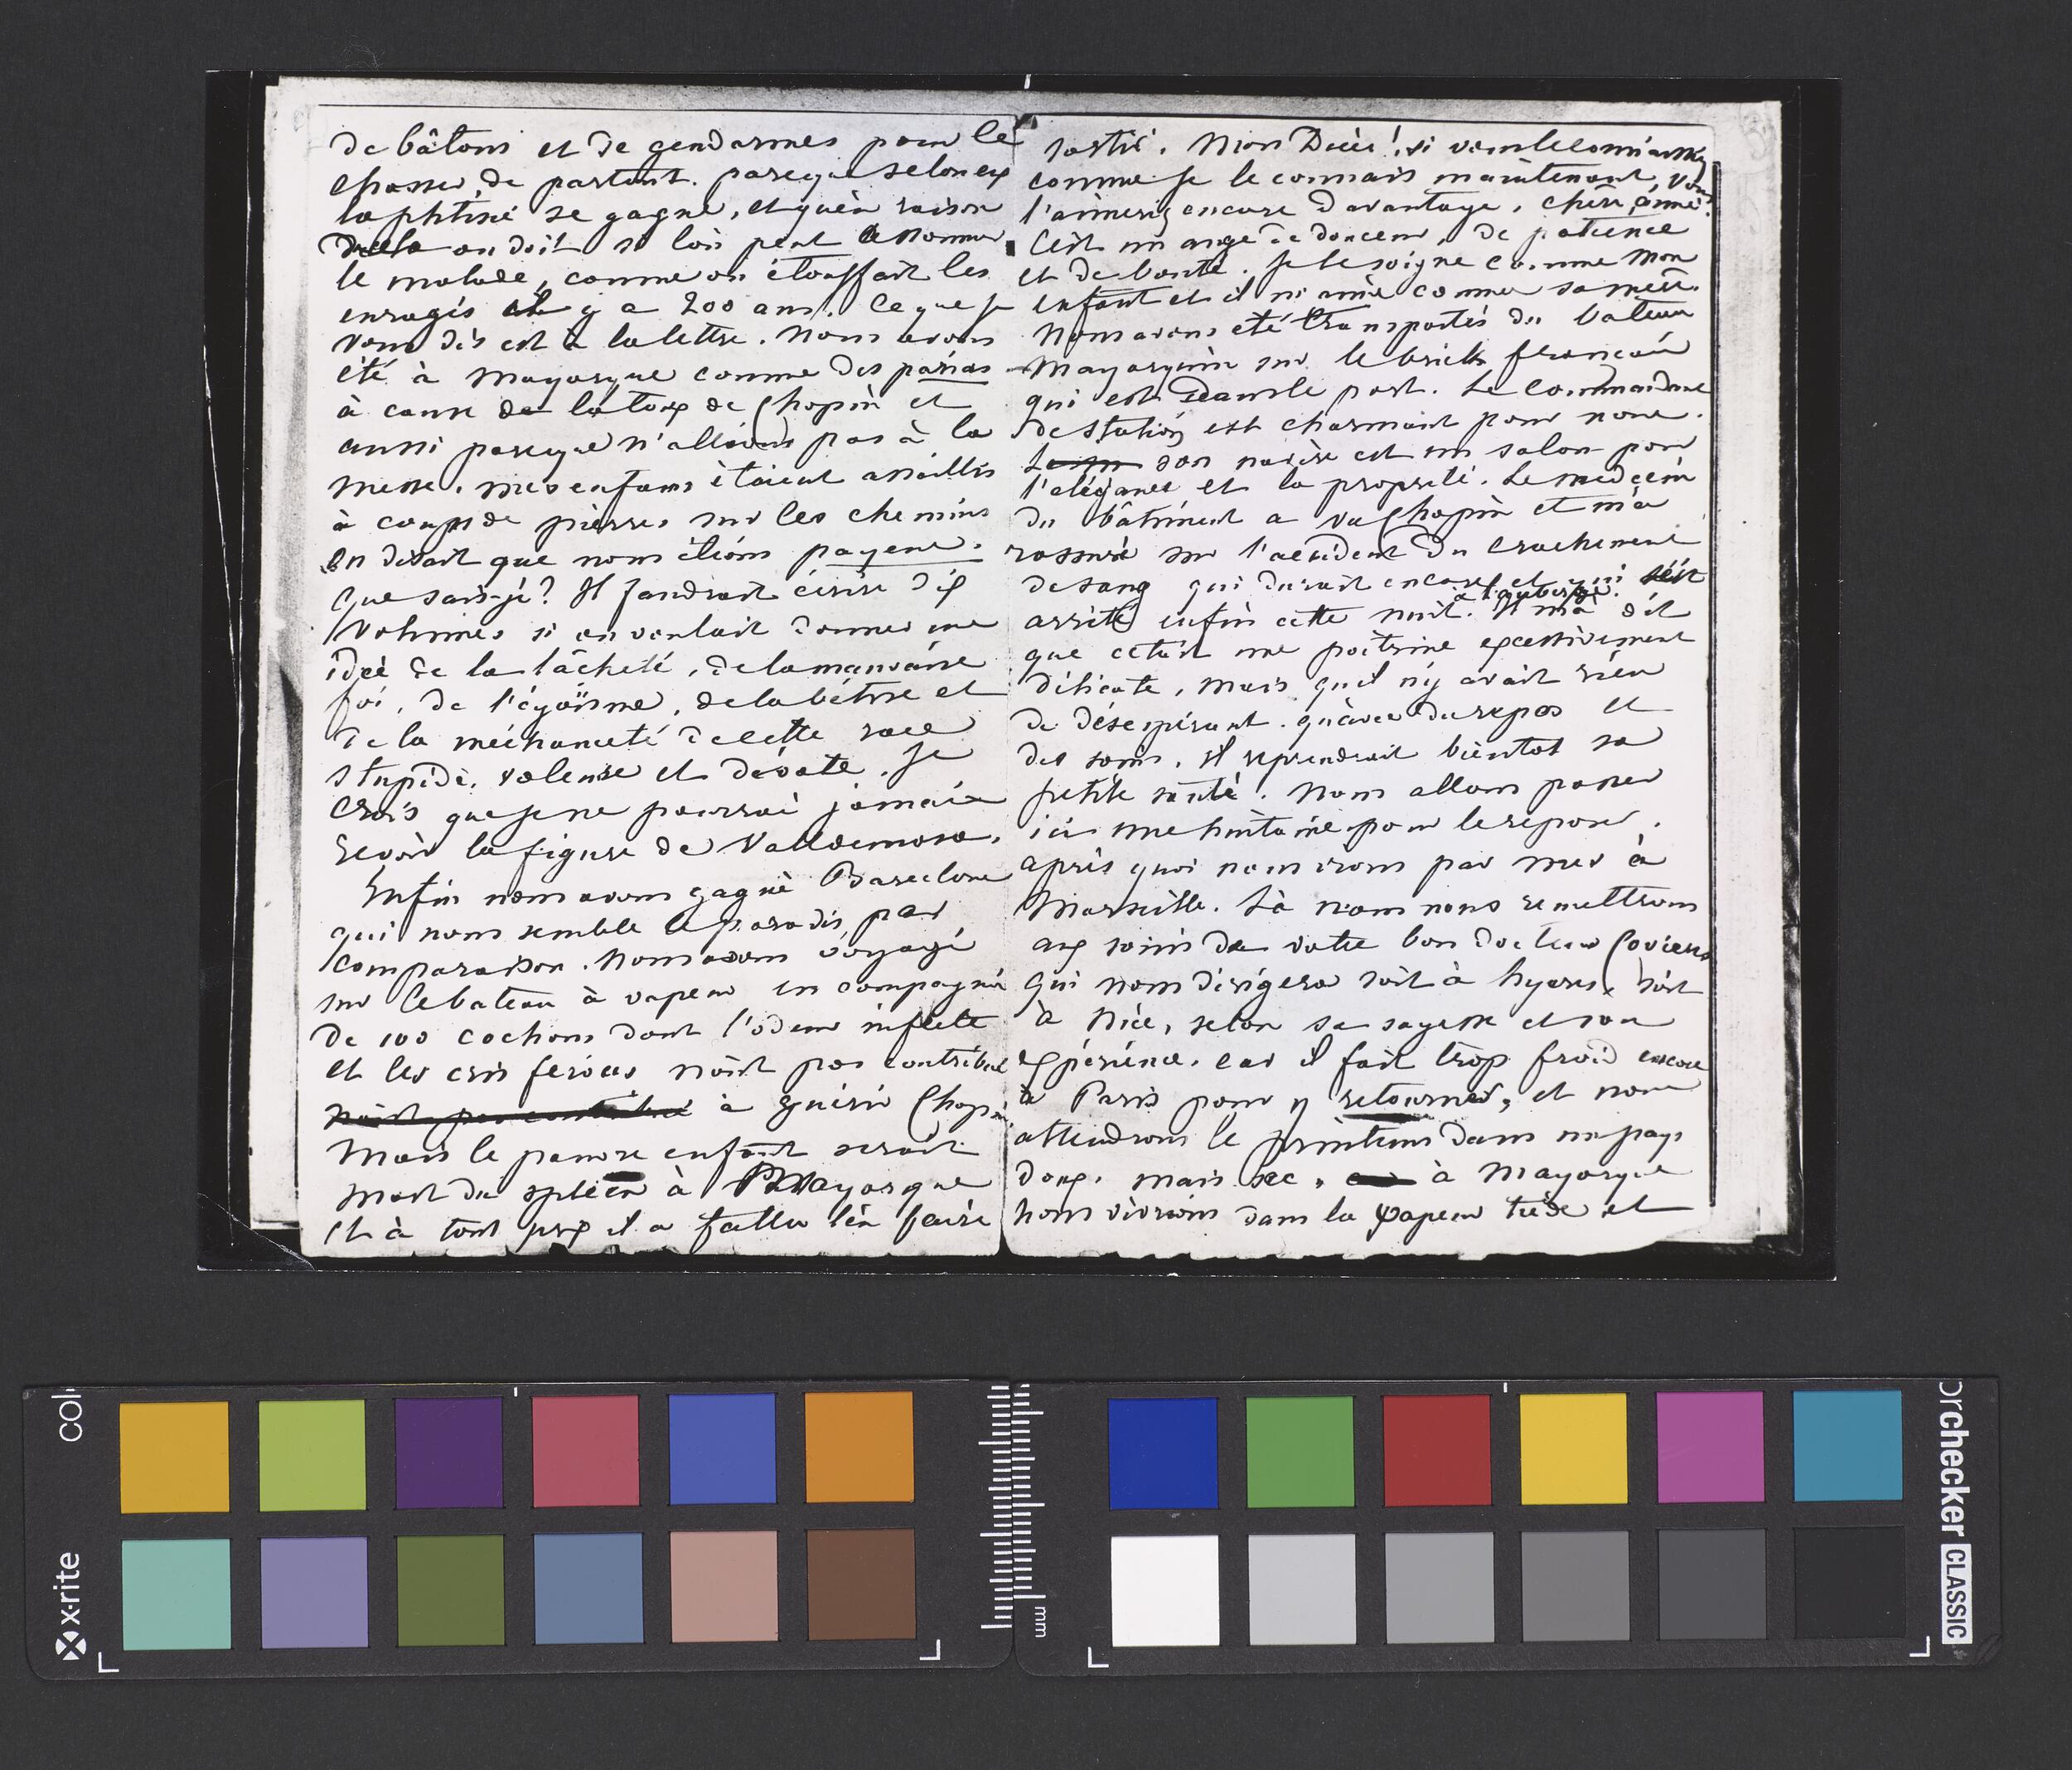 de bâtons et de gendarmes pour le
chasser de partout. parceque selon eux
la phtisie se gagne, et qu'en raison
de cela on doit si l'on peut assommer
le malade, comme on étouffait les
enragés il y a 200 ans. Ce que je
vous dis est à la lettre. Nous avons
été à Mayorque comme des parias
à cause de la toux de Chopin et
aussi parceque n'allions pas à la
messe. mes enfans étaient assaillis
à coups de pierres sur les chemins
On disait que nous étions payens.
que sais-je? Il faudrait écrire dix
volumes si on voulait donner une
idée de la lâcheté, de la mauvaise
foi, de l'égoïsme, de la bêtise et
de la méchanceté de cette race
stupide, voleuse et dévote. Je
crois que je ne pourrai jamais
revoir la figure de Valldemosa.
Enfin nous avons gagné Barcelone
qui nous semble le paradis par
comparaison. Nous avons voyagé
sur le bateau à vapeur en compagnie
de 100 cochons dont l'odeur infecte
et les cris féroces n'ont pas contribué
n'ont pas contribué à guérir Chopin
Mais le pauvre enfant serait
mort du spleen à Mayorque
et à tout prix il a fallu l'en faire
sortir. Mon Dieu! si vous le connaissiez
comme je le connais maintenant, vous
l'aimeriez encore davantage, chère amie.
C'est un ange de douceur, de patience
et de bonté. Je le soigne comme mon
enfant et il m'aime comme sa mère.
Nous avons été transportés du bateau
mayorquin sur le brick français
qui est dans le port. Le commandant
de station est charmant pour nous.
son navire est un salon pour
l'élégance et la propreté. Le médecin
du bâtiment a vu Chopin et m'a
rassuré sur l'accident du crachement
de sang qui durait encore et qui s'est
à l'auberge.
arrêté enfin cette nuit. Il m'a dit
que c'était une poitrine excessivement
délicate, mais qu'il n'y avait rien
de désespérant. qu'avec du repos et
des soins, il reprendrait bientôt sa
petite santé. Nous allons passer
ici une huitaine pour le reposer.
après quoi nous irons par mer à
Marseille. Là nous nous remettrons
aux soins de votre bon docteur Coviere
qui nous dirigera soit à hyeres, soit
à Nice, selon sa sagesse et son
expérience. car il fait trop froid encore
à Paris pour y retourner, et nous
attendrons le printems dans un pays
doux, mais sec. à Mayorque
nous vivions dans la vapeur tiède et
x-rite
col
mm
orchecker CLASSIC